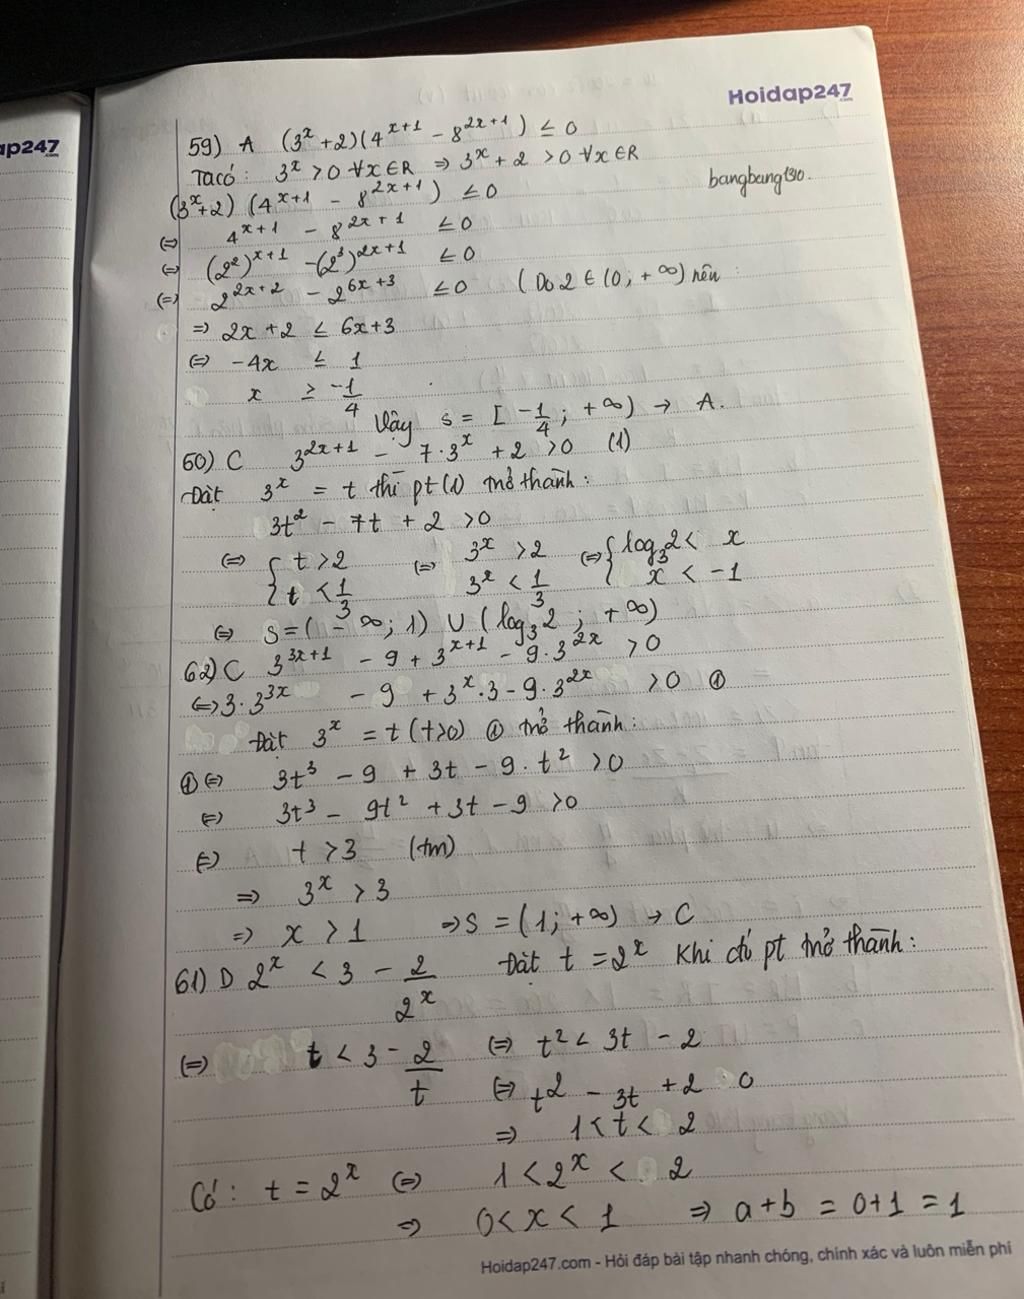 ap247
Hoidap247
.com
59) A (3^x + 2)(4^{x+1} - 8^{2x+1}) ≤ 0
Ta có: 3^x > 0 ∀x∈R ⇒ 3^x + 2 > 0 ∀x∈R
bangbang130.
(3^x+2) (4^{x+1} - 8^{2x+1}) ≤ 0
⇔ 4^{x+1} - 8^{2x+1} ≤ 0
⇔ (2^2)^{x+1} - (2^3)^{2x+1} ≤ 0
⇔ 2^{2x+2} - 2^{6x+3} ≤ 0 (Do 2 ∈ (0; +∞) nên :
⇒ 2x + 2 ≤ 6x+3
⇔ -4x ≤ 1
x ≥ -1/4
Vậy S = [-1/4; +∞) → A.
60) C 3^{2x+1} - 7·3^x + 2 > 0 (1)
Đặt 3^x = t thì pt(1) trở thành:
3t^2 - 7t + 2 > 0
⇔ { t > 2 ⇔ 3^x > 2 ⇔ { log_3 2 < x
{ t < 1/3 3^x < 1/3 x < -1
⇔ S = (-∞; 1) ∪ (log_3 2; +∞)
62) C 3^{3x+1} - 9 + 3^{x+1} - 9·3^{2x} > 0
⇔ 3·3^{3x} - 9 + 3^x·3 - 9·3^{2x} > 0 ①
Đặt 3^x = t (t>0) ① trở thành:
① ⇔ 3t^3 - 9 + 3t - 9·t^2 > 0
⇔ 3t^3 - 9t^2 + 3t - 9 > 0
⇔ t > 3 (tm)
⇒ 3^x > 3
⇒ x > 1 ⇒ S = (1; +∞) → C
61) D 2^x < 3 - 2/2^x Đặt t = 2^x Khi đó pt trở thành:
⇔ t < 3 - 2/t ⇔ t^2 < 3t - 2
⇔ t^2 - 3t + 2 0
⇒ 1 < t < 2
Có: t = 2^x ⇔ 1 < 2^x < 2
⇒ 0 < x < 1 ⇒ a+b = 0+1 = 1
Hoidap247.com - Hỏi đáp bài tập nhanh chóng, chính xác và luôn miễn phí